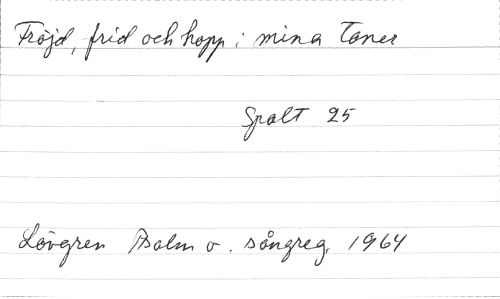 Fröjd, frid och hopp i mina toner
Spalt 25
Lövgren Psalm o. sångreg. 1964